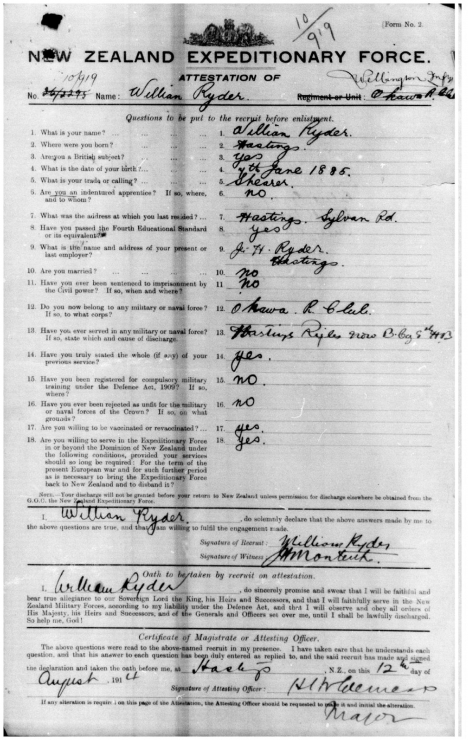 10/919
[Form No. 2.
NEW ZEALAND EXPEDITIONARY FORCE.
ATTESTATION OF
Wellington Infy
10/919
No. Name: William Ryder. Regiment or Unit: Okawa R. Club
Questions to be put to the recruit before enlistment.
1. What is your name? ... 1. William Ryder.
2. Where were you born? ... 2. Hastings.
3. Are you a British subject? ... 3. yes
4. What is the date of your birth? ... 4. 7th June 1885.
5. What is your trade or calling? ... 5. Shearer.
6. Are you an indentured apprentice? If so, where, 6. no.
and to whom?
7. What was the address at which you last resided? ... 7. Hastings. Sylvan Rd.
8. Have you passed the Fourth Educational Standard 8. yes
or its equivalent?
9. What is the name and address of your present or 9. J. H. Ryder.
last employer? Hastings.
10. Are you married? ... 10. no
11. Have you ever been sentenced to imprisonment by 11. no
the Civil power? If so, when and where?
12. Do you now belong to any military or naval force? 12. Okawa R. Club.
If so, to what corps?
13. Have you ever served in any military or naval force? 13. Hastings Rifles now B. Coy 9th HB
If so, state which and cause of discharge.
14. Have you truly stated the whole (if any) of your 14. yes.
previous service?
15. Have you been registered for compulsory military 15. no.
training under the Defence Act, 1909? If so,
where?
16. Have you ever been rejected as unfit for the military 16. no
or naval forces of the Crown? If so, on what
grounds?
17. Are you willing to be vaccinated or revaccinated? ... 17. yes.
18. Are you willing to serve in the Expeditionary Force 18. yes.
in or beyond the Dominion of New Zealand under
the following conditions, provided your services
should so long be required: For the term of the
present European war and for such further period
as is necessary to bring the Expeditionary Force
back to New Zealand and to disband it?
NOTE.—Your discharge will not be granted before your return to New Zealand unless permission for discharge elsewhere be obtained from the
G.O.C. the New Zealand Expeditionary Force.
I, William Ryder. , do solemnly declare that the above answers made by me to
the above questions are true, and that I am willing to fulfil the engagement made.
Signature of Recruit: William Ryder
Signature of Witness: Monteith.
Oath to be taken by recruit on attestation.
I, William Ryder , do sincerely promise and swear that I will be faithful and
bear true allegiance to our Sovereign Lord the King, his Heirs and Successors, and that I will faithfully serve in the New
Zealand Military Forces, according to my liability under the Defence Act, and that I will observe and obey all orders of
His Majesty, his Heirs and Successors, and of the Generals and Officers set over me, until I shall be lawfully discharged.
So help me, God!
Certificate of Magistrate or Attesting Officer.
The above questions were read to the above-named recruit in my presence. I have taken care that he understands each
question, and that his answer to each question has been duly entered as replied to, and the said recruit has made and signed
the declaration and taken the oath before me, at Hastings , N.Z., on this 12th day of
August , 1914
Signature of Attesting Officer:
Major
If any alteration is required on this page of the Attestation, the Attesting Officer should be requested to make it and initial the alteration.